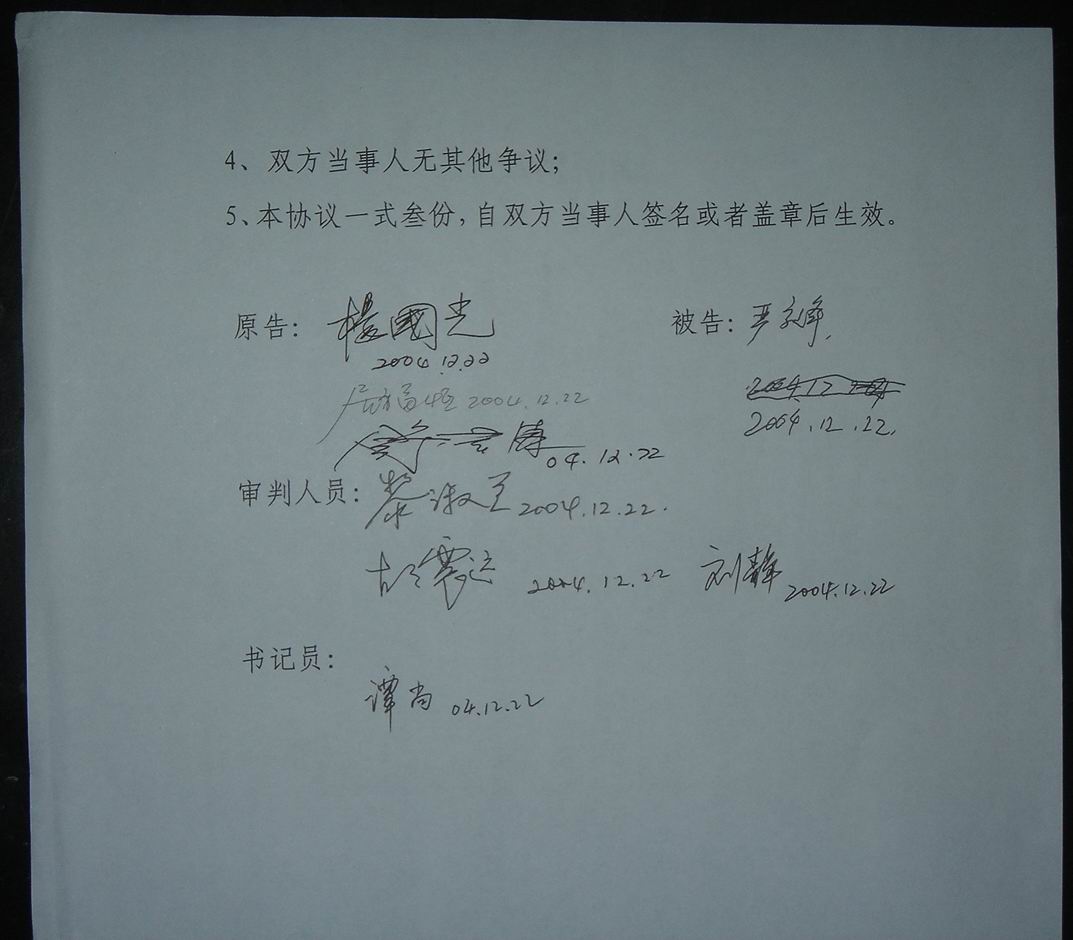 4、双方当事人无其他争议；
5、本协议一式叁份，自双方当事人签名或者盖章后生效。
原告： 楊國光 被告：
2004.12.22
2004.12.22
2004.12.22.
04.12.22
审判人员： 黎淑 2004.12.22.
2004.12.22 刘静 2004.12.22
书记员：
谭尚 04.12.22